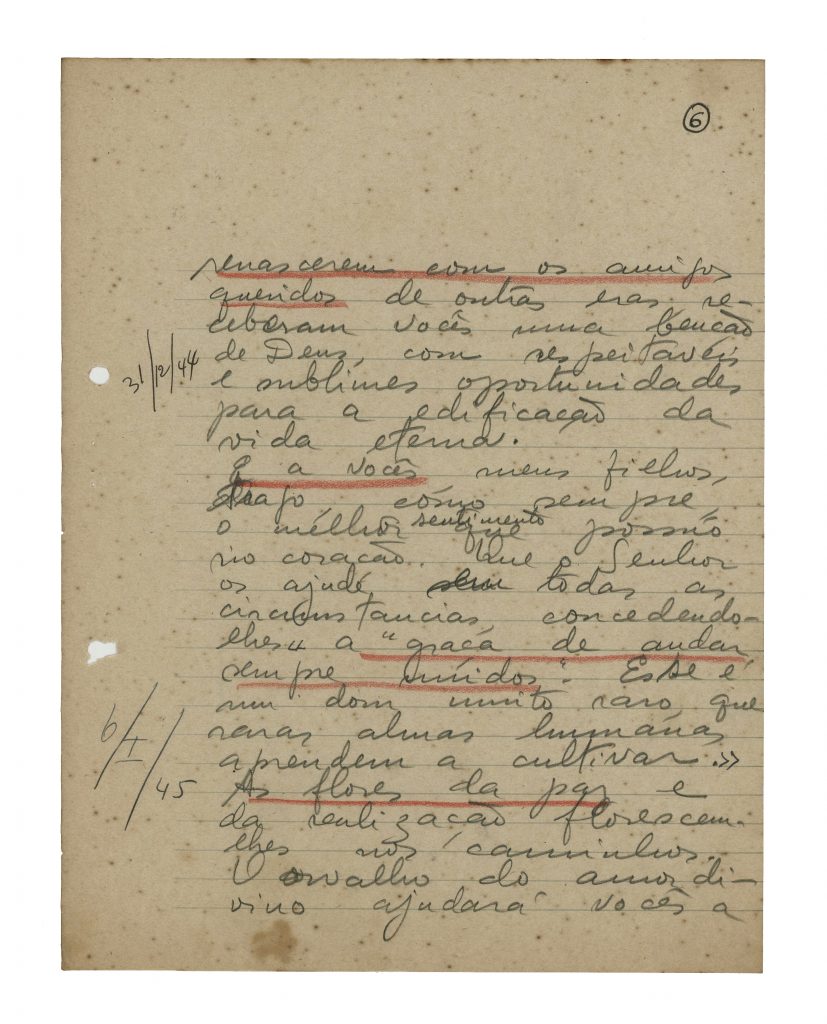 6
renascerem com os amigos
queridos de outras eras re-
ceberam vocês uma benção
de Deus, com respeitaveis
31/12/44
e sublimes oportunidades
para a edificação da
vida eterna.
E a vocês meus filhos,
trago como sempre,
o melhor sentimento que possuo
no coração. Que o Senhor
os ajude em todas as
circunstancias, concedendo-
lhes a "graça de andar
sempre unidos". Esse é
um dom muito raro, que
raras almas humanas
aprendem a cultivar.»
6/I/45
As flores da paz e
da realização florescem-
lhes nos caminhos.
O orvalho do amor di-
vino ajudará vocês a